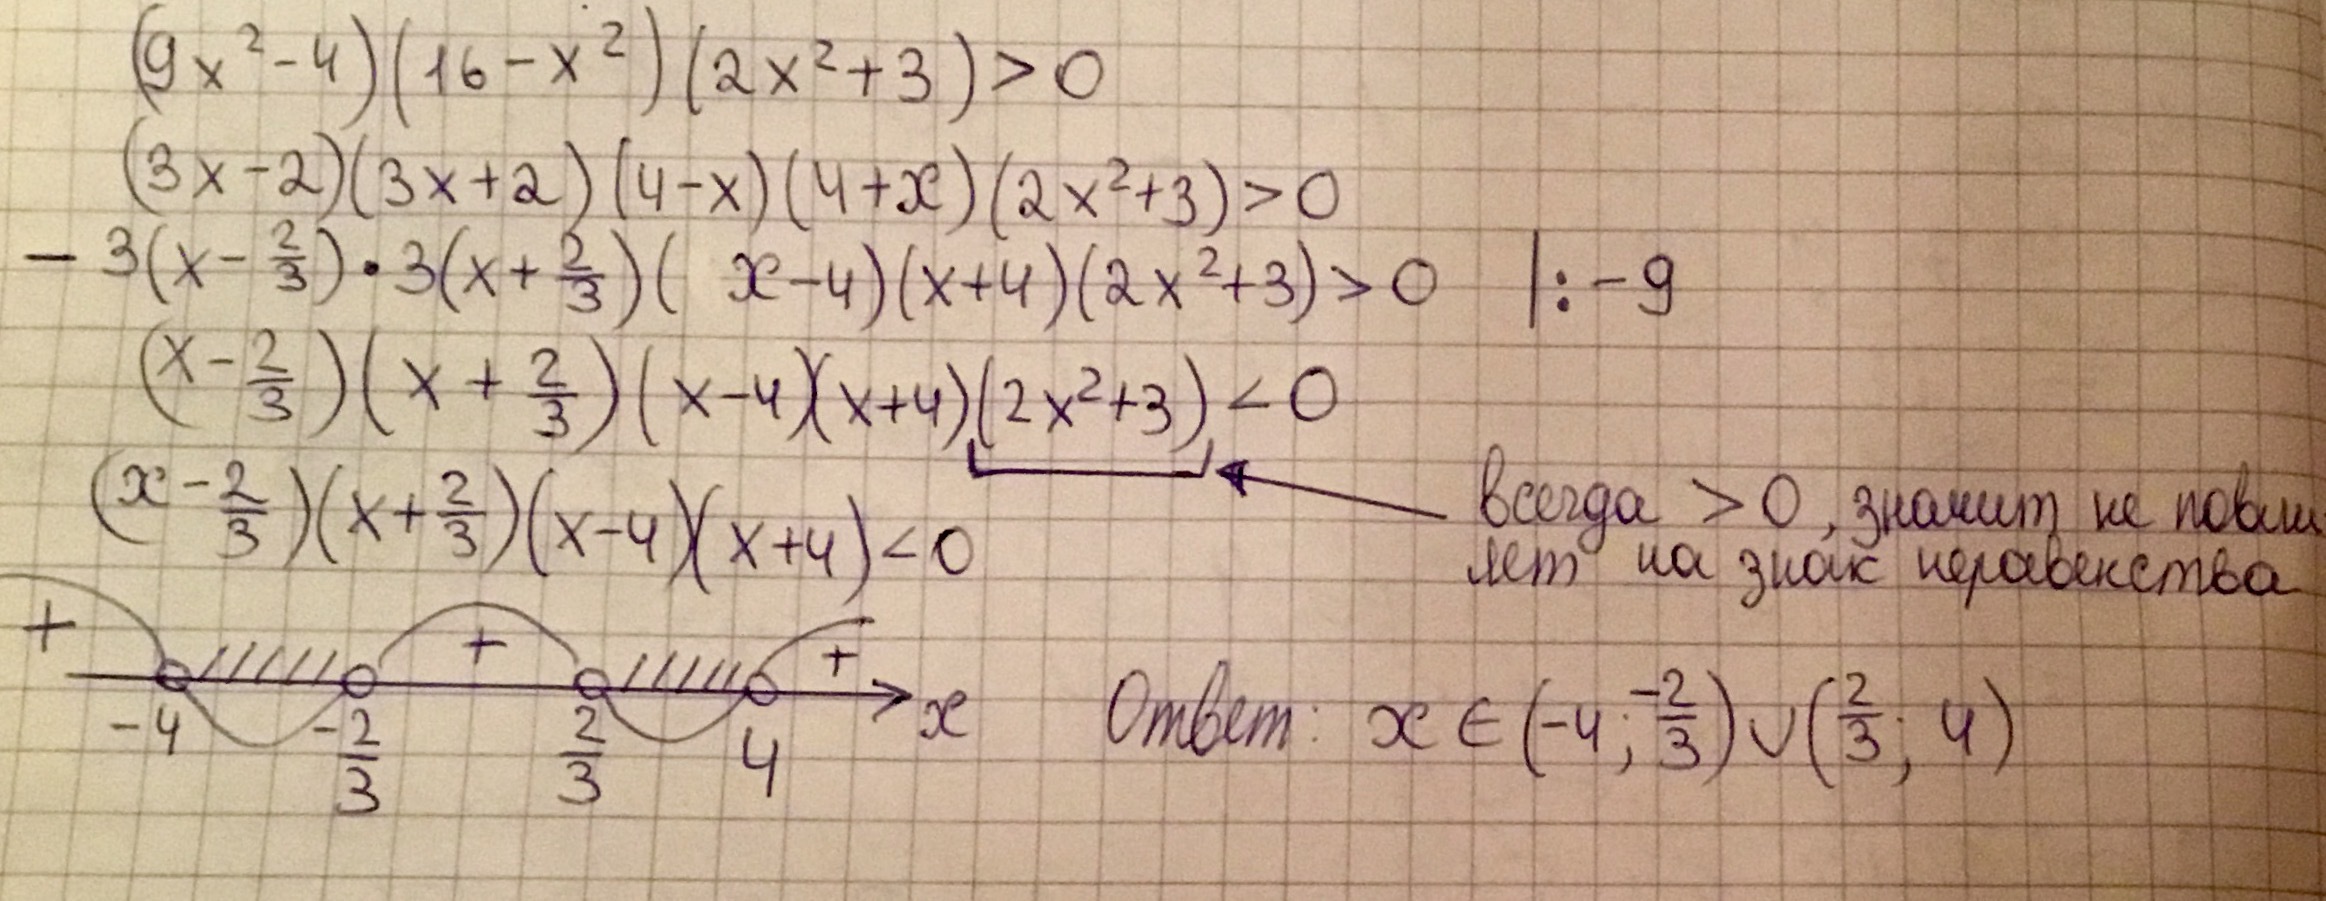 (9x²-4)(16-x²)(2x²+3)>0
(3x-2)(3x+2)(4-x)(4+x)(2x²+3)>0
-3(x-2/3)·3(x+2/3)(x-4)(x+4)(2x²+3)>0 |:-9
(x-2/3)(x+2/3)(x-4)(x+4)(2x²+3)<0
всегда >0, значит не повли
яет на знак неравенства
(x-2/3)(x+2/3)(x-4)(x+4)<0
+ + +
-4 -2/3 2/3 4 x
Ответ: x∈(-4;-2/3)∪(2/3;4)